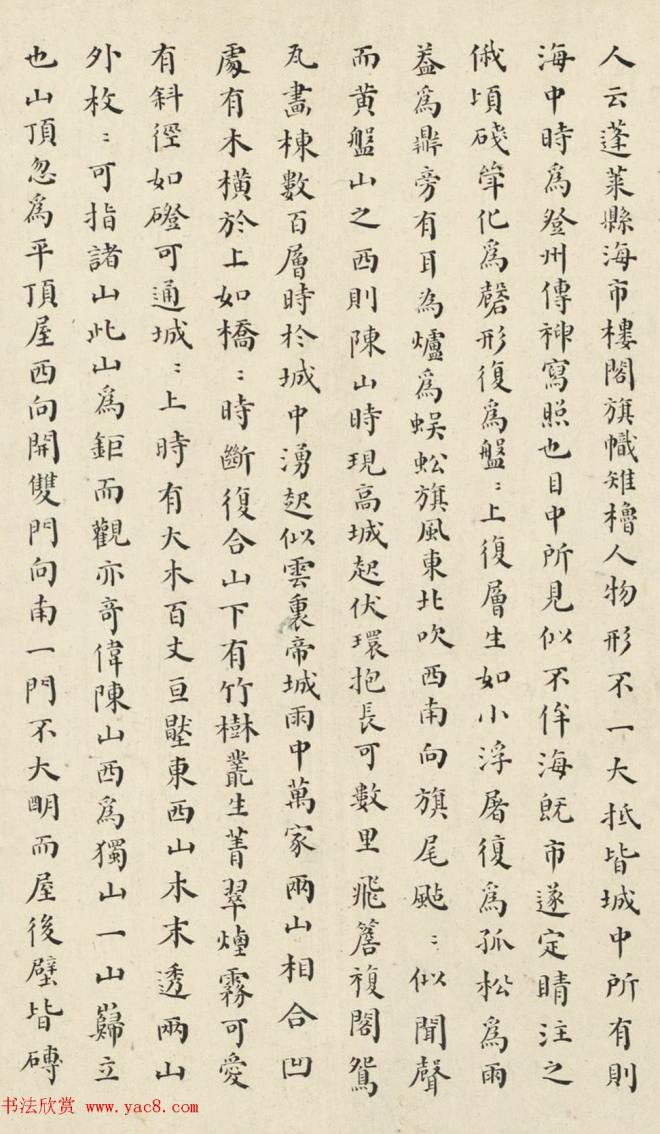 人云蓬萊縣海市樓閣旗幟雉櫓人物形不一大抵皆城中所有則
海中時為登州傳神寫照也目中所見似不侔海旣市遂定睛注之
俄頃磩聳化為磬形復為盤〻上復層生如小浮屠復為孤松為兩
蓋為鼎旁有耳為爐為蜈蚣旗風東北吹西南向旗尾颭〻似聞聲
而黄盤山之西則陳山時現高城起伏環抱長可數里飛簷複閣鴛
瓦畫棟數百層時於城中湧起似雲裏帝城雨中萬家兩山相合凹
處有木橫於上如橋〻時斷復合山下有竹樹叢生菁翠煙霧可愛
有斜徑如磴可通城〻上時有大木百丈亘壓東西山木末透兩山
外枚〻可指諸山此山為鉅而觀亦奇偉陳山西為獨山一山巋立
也山頂忽為平頂屋西向開雙門向南一門不大眀而屋後壁皆磚
书法欣赏 www.yac8.com